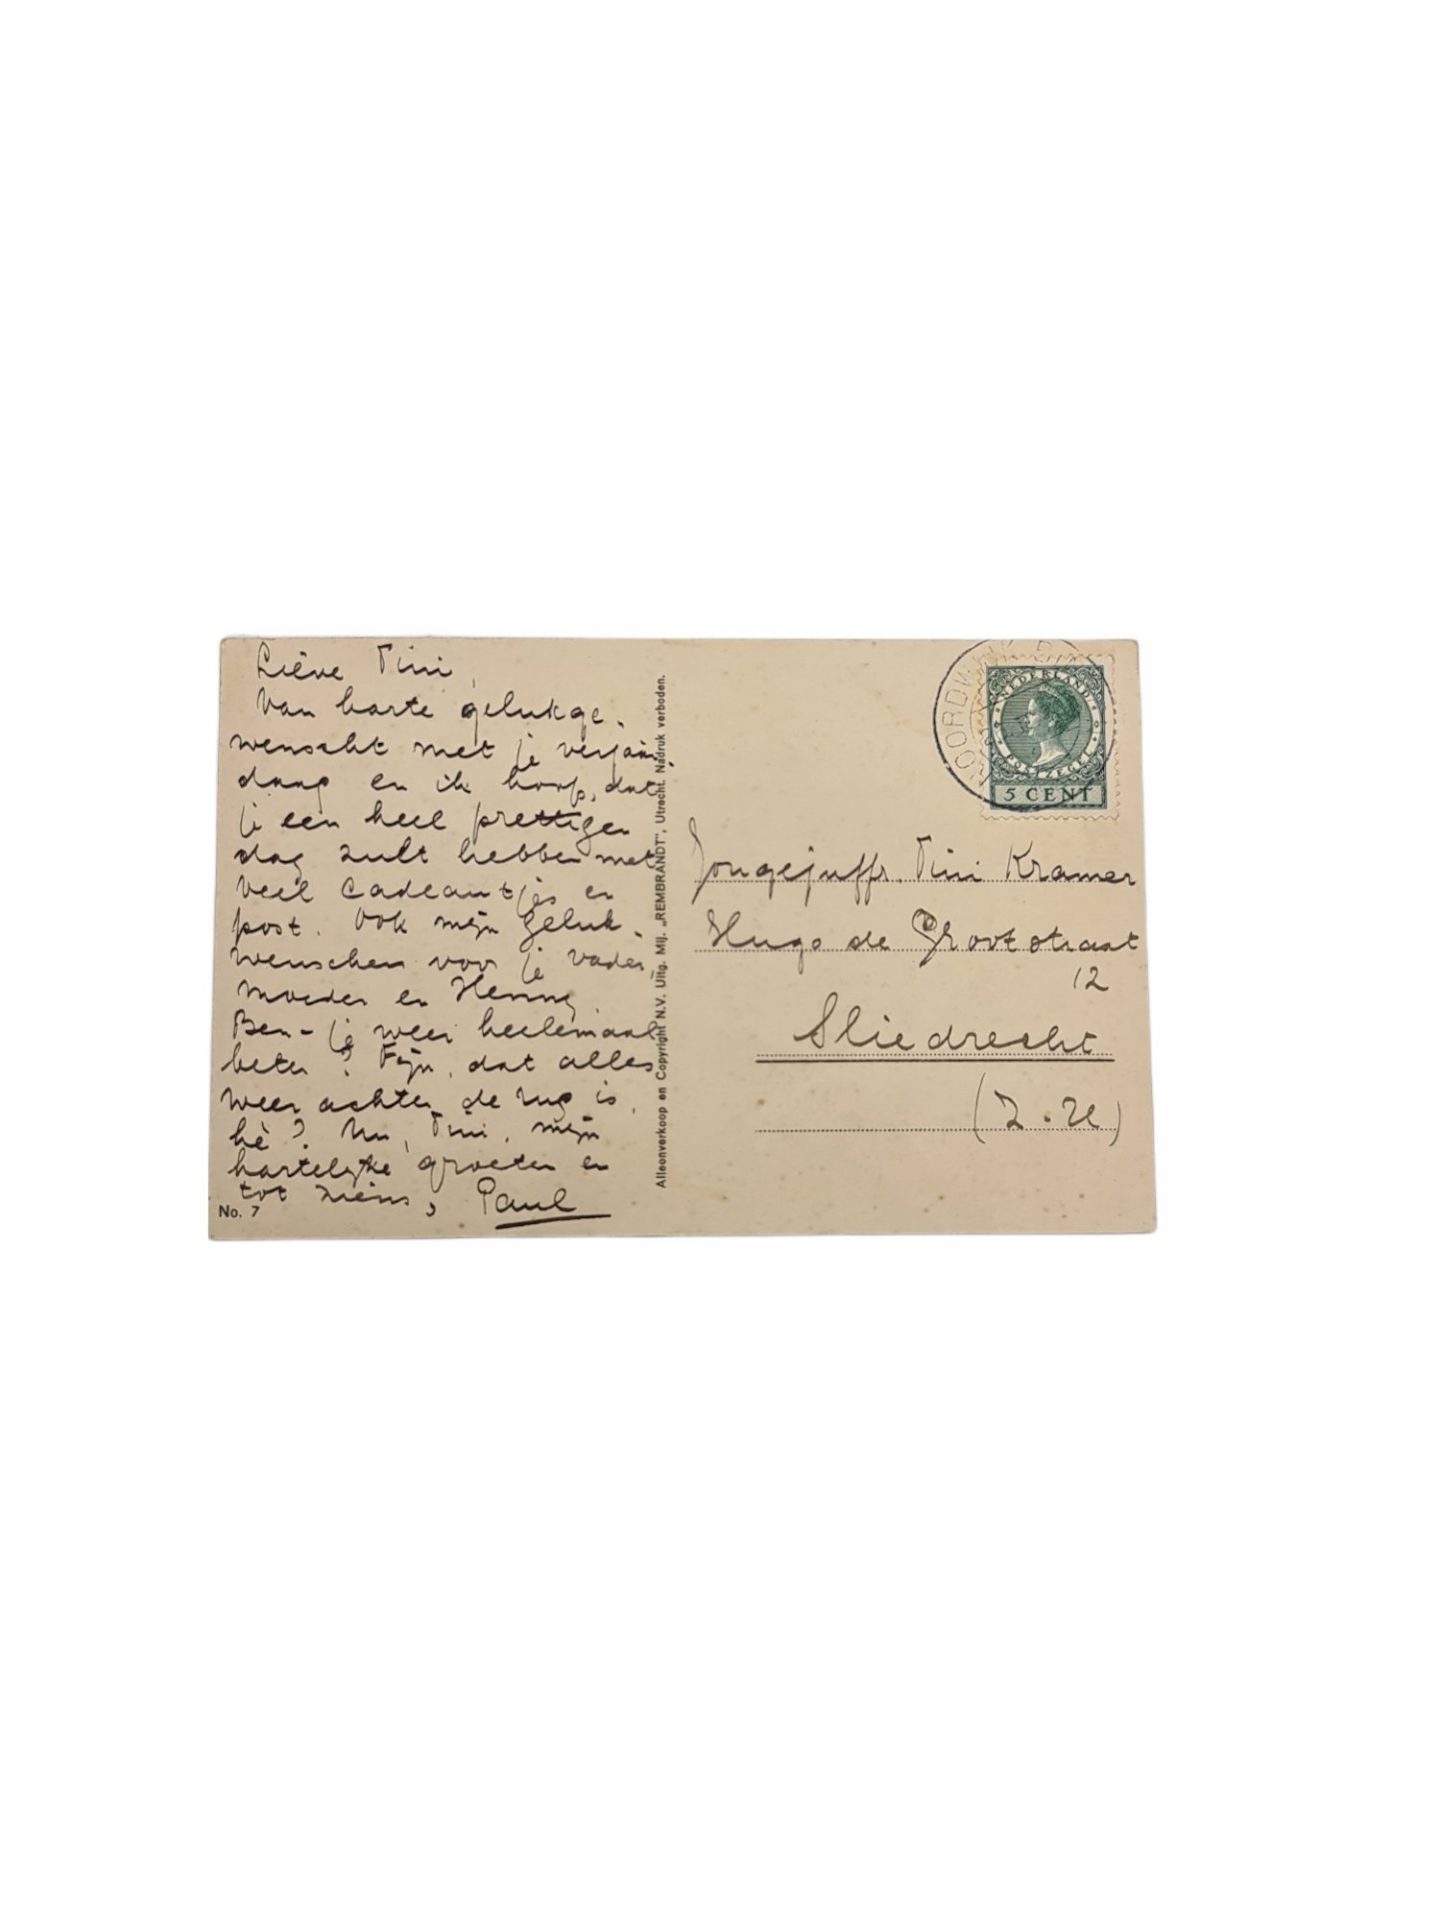 Liève Tini,
Van harte gelukge-
wenscht met je verjaar-
daag en ik hoop, dat
je een heel prettigen
dag zult hebben met
veel cadeautjes en
post. Ook mijn geluk-
wenschen voor je vader,
moeder en Henny
Ben-je weer heelemaal
beter? Fijn, dat alles
weer achter de rug is,
hè? Nu, Tini, mijn
hartelijke groeten en
tot ziens, Paul
No. 7
Alleenverkoop en Copyright N.V. Uitg. Mij. „REMBRANDT", Utrecht. Nadruk verboden.
NOORDWIJK
NEDERLAND
POSTZEGEL
5 CENT
Jongejuffr. Tini Kramer
Hugo de Grootstraat
12
Sliedrecht
(Z.H)